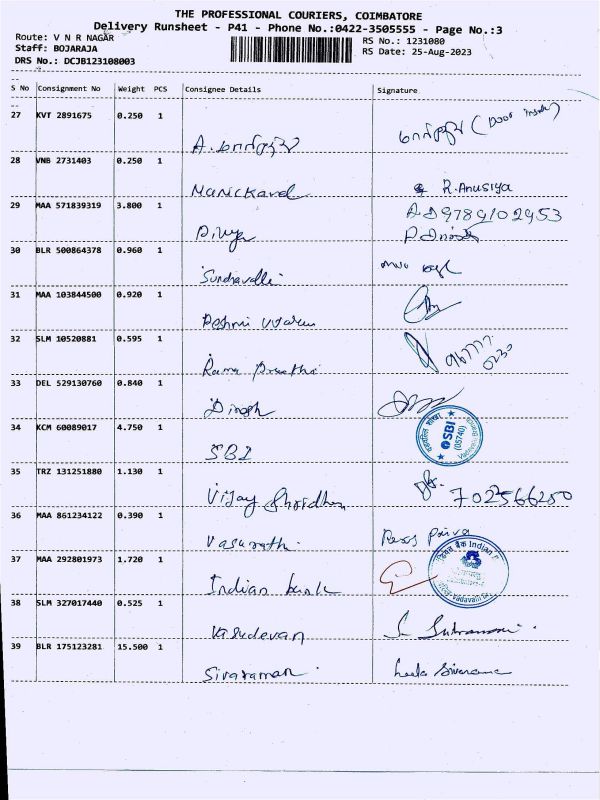 THE PROFESSIONAL COURIERS, COIMBATORE
Delivery Runsheet - P41 - Phone No.:0422-3505555 - Page No.:3
Route: V N R NAGAR
RS No.: 1231080
Staff: BOJARAJA
RS Date: 25-Aug-2023
DRS No.: DCJB123108003
S No Consignment No Weight PCS Consignee Details Signature
27 KVT 2891675 0.250 1
A.
28 VNB 2731403 0.250 1
Manickavel R.Anusiya
29 MAA 571839319 3.800 1
Divya
30 BLR 500864378 0.960 1
Sundravalli
31 MAA 103844500 0.920 1
32 SLM 10520881 0.595 1
Rama Preetha
33 DEL 529130760 0.840 1
Dinesh
34 KCM 60089017 4.750 1
SBI
SBI
(05740)
35 TRZ 131251880 1.130 1
Vijay Shridhan 702566250
36 MAA 861234122 0.390 1
Vasunath. Priya
37 MAA 292801973 1.720 1
Indian bank
38 SLM 327017440 0.525 1
Vasudevan
39 BLR 175123281 15.500 1
Sivaraman Leela Sivarama